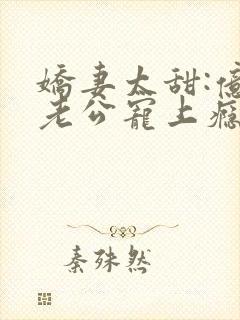 嬌妻太甜:億
老公寵上癮
秦殊然